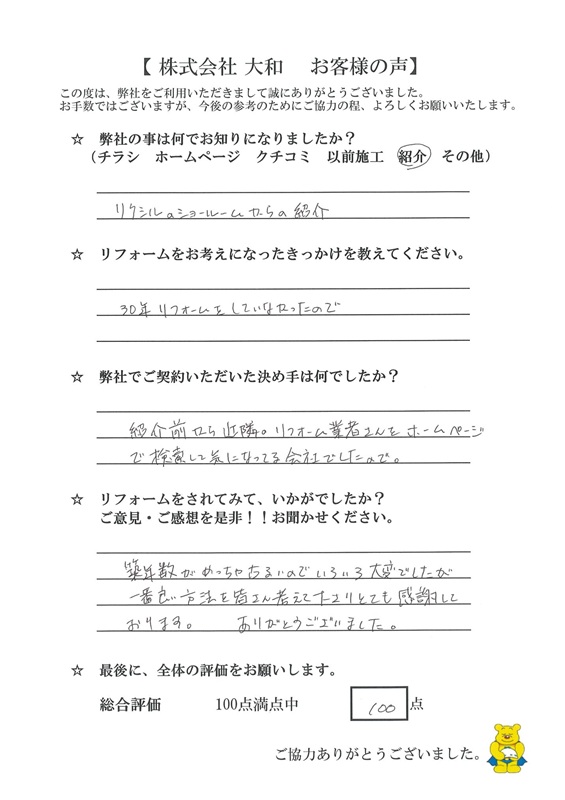 【 株式会社 大和　お客様の声】
この度は、弊社をご利用いただきまして誠にありがとうございました。
お手数ではございますが、今後の参考のためにご協力の程、よろしくお願いいたします。
☆ 弊社の事は何でお知りになりましたか？
（チラシ　ホームページ　クチコミ　以前施工　紹介　その他）
リクシルのショールームからの紹介
☆ リフォームをお考えになったきっかけを教えてください。
30年リフォームをしていなかったので
☆ 弊社でご契約いただいた決め手は何でしたか？
紹介前から近隣のリフォーム業者さんをホームページ
で検索して気になってる会社でしたので。
☆ リフォームをされてみて、いかがでしたか？
ご意見・ご感想を是非！！お聞かせください。
築年数がめっちゃ古るいのでいろいろ大変でしたが
一番良い方法を皆さん考えて下さりとても感謝して
おります。　ありがとうございました。
☆ 最後に、全体の評価をお願いします。
総合評価　100点満点中　100 点
ご協力ありがとうございました。